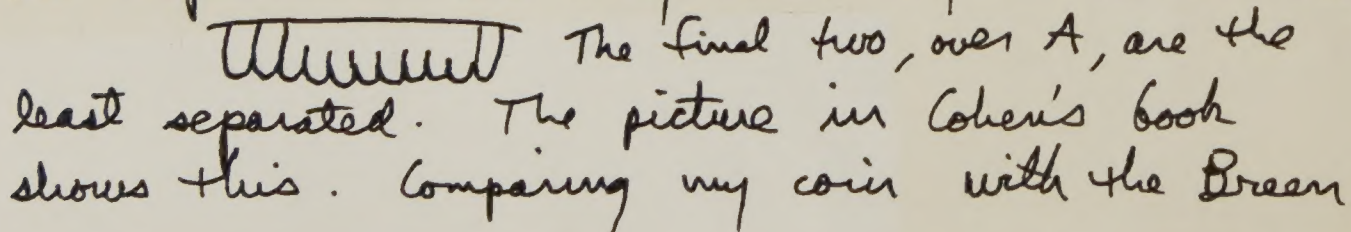 The final two, over A, are the
least separated. The picture in Cohen's book
shows this. Comparing my coin with the Breen